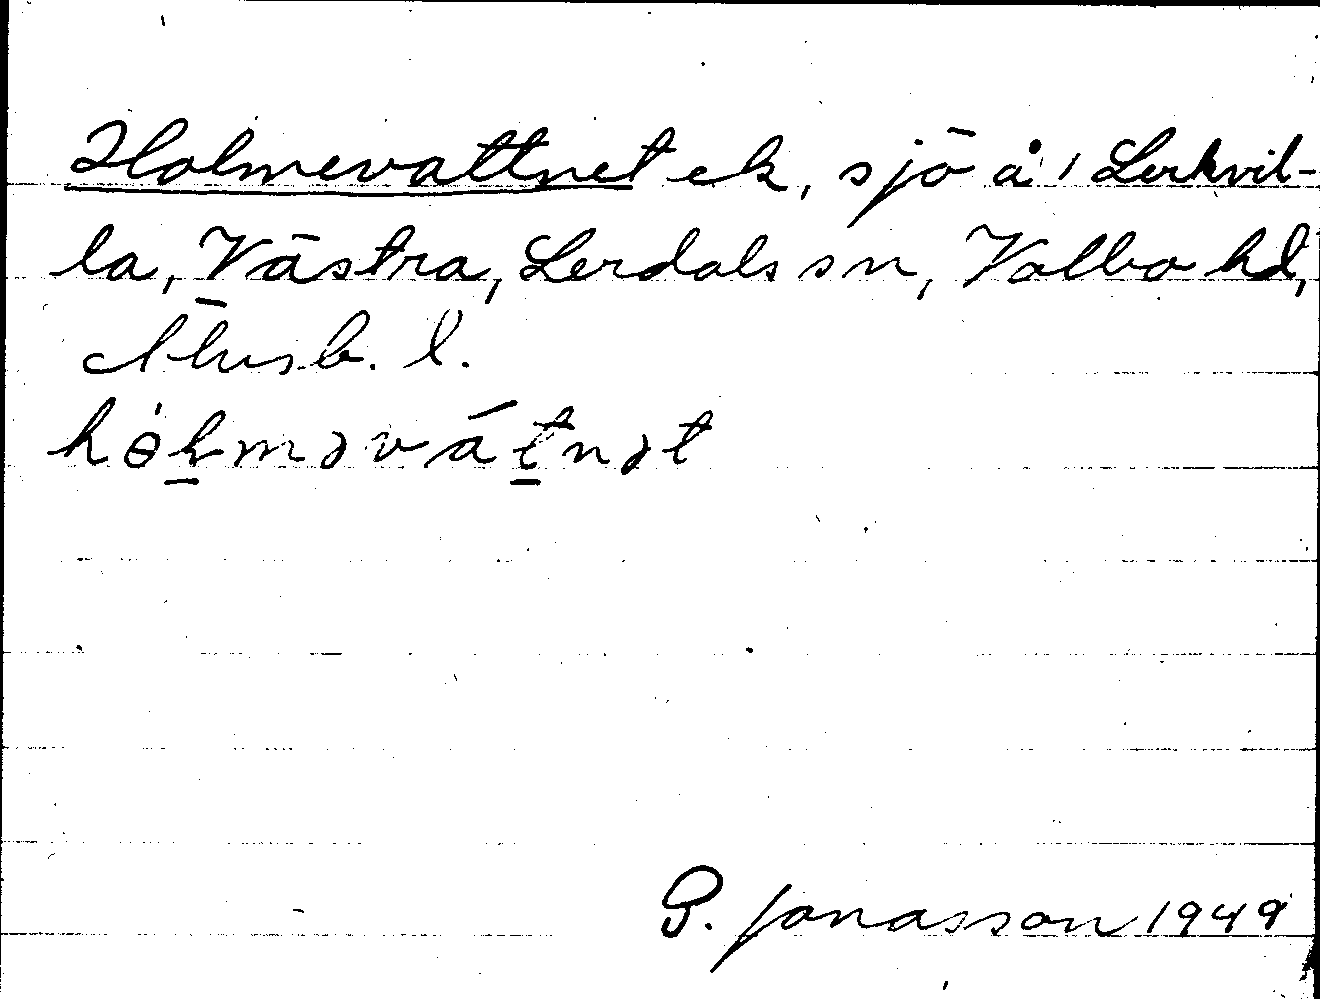 Holmevattnet ek, sjö å 1 Lerkvil-
la, Västra, Lerdals sn, Valbo hd,
Älvsb. l.
hɵ̇l̠məvát̠nət
G. Jonasson 1949